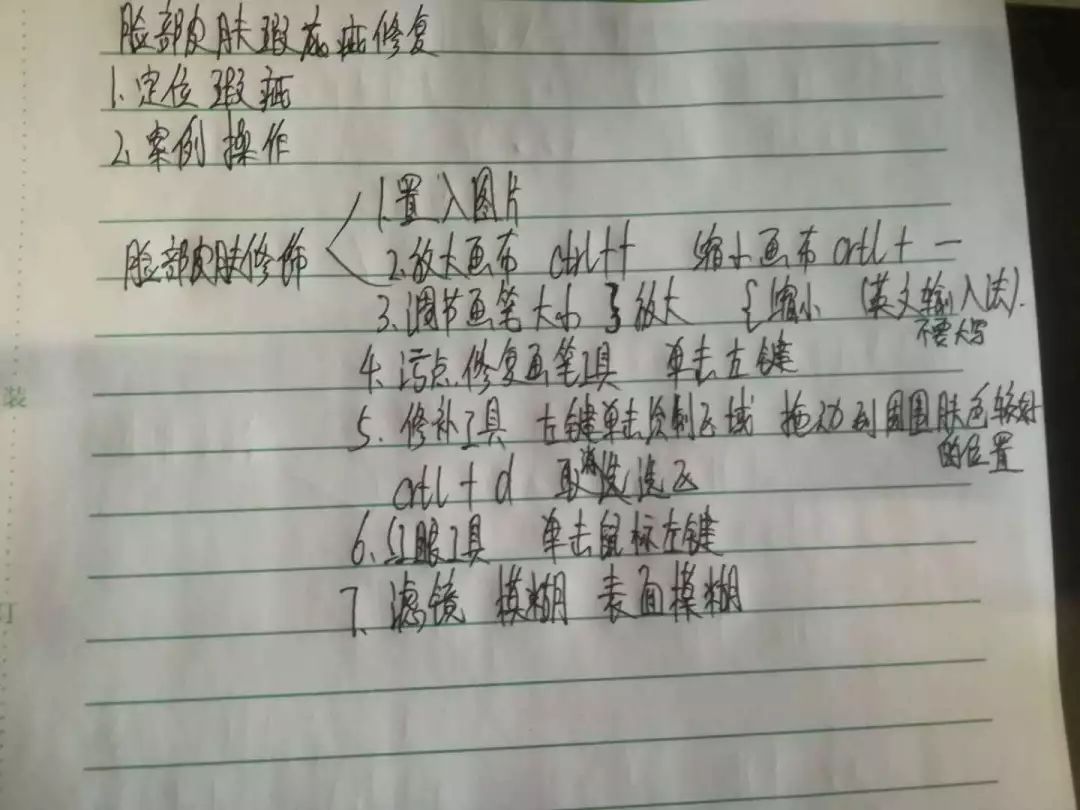 脸部皮肤瑕疵修复
1.定位 瑕疵
2.案例 操作
脸部皮肤修饰
1.置入图片
2.放大画布 ctrl++ 缩小画布 crtl + —
3.调节画笔大小 } 放大 { 缩小 (英文输入法).
不要大写
4.污点修复画笔工具 单击左键
5.修补工具 左键单击绘制区域 拖动到周围肤色较好
的位置
crtl + d 取消选区
6.红眼工具 单击鼠标左键
7.滤镜 模糊 表面模糊
装
订